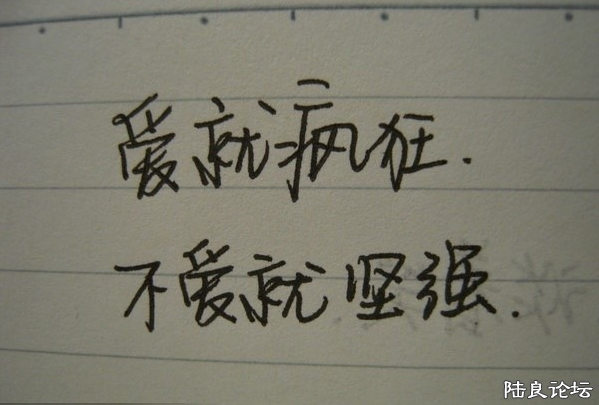 爱就疯狂.
不爱就坚强.
陆良论坛